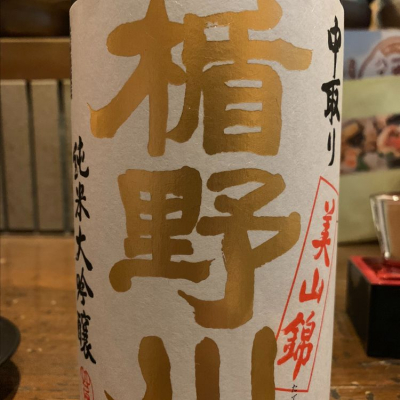 中取り
美山錦
楯野川
純米大吟醸